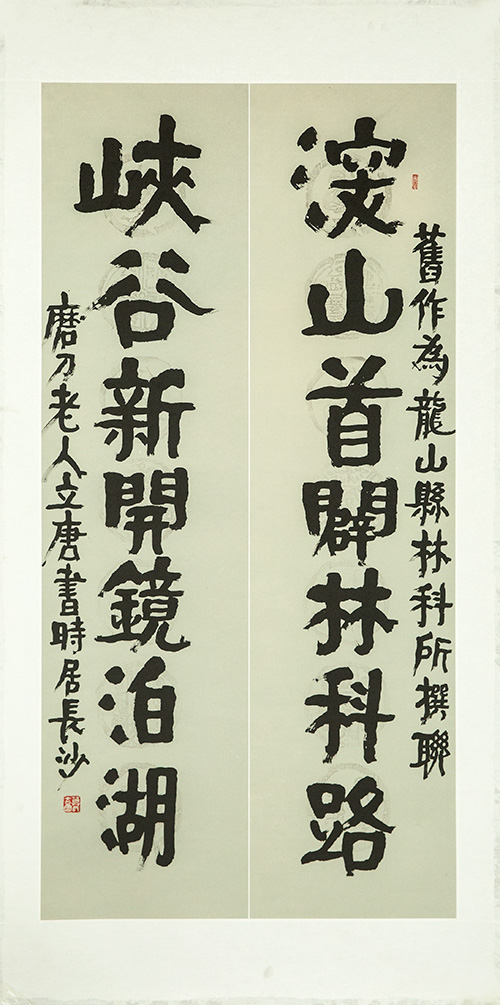 舊作為龍山縣林科所撰聯
深山首闢林科路
峽谷新開鏡泊湖
磨刀老人立唐書時居長沙